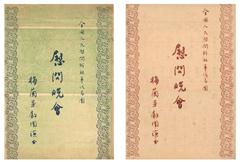 全國人民慰問解放軍代表團
慰問晚會
梅蘭芳劇團演出
全國人民慰問解放軍代表團
慰問晚會
梅蘭芳劇團演出